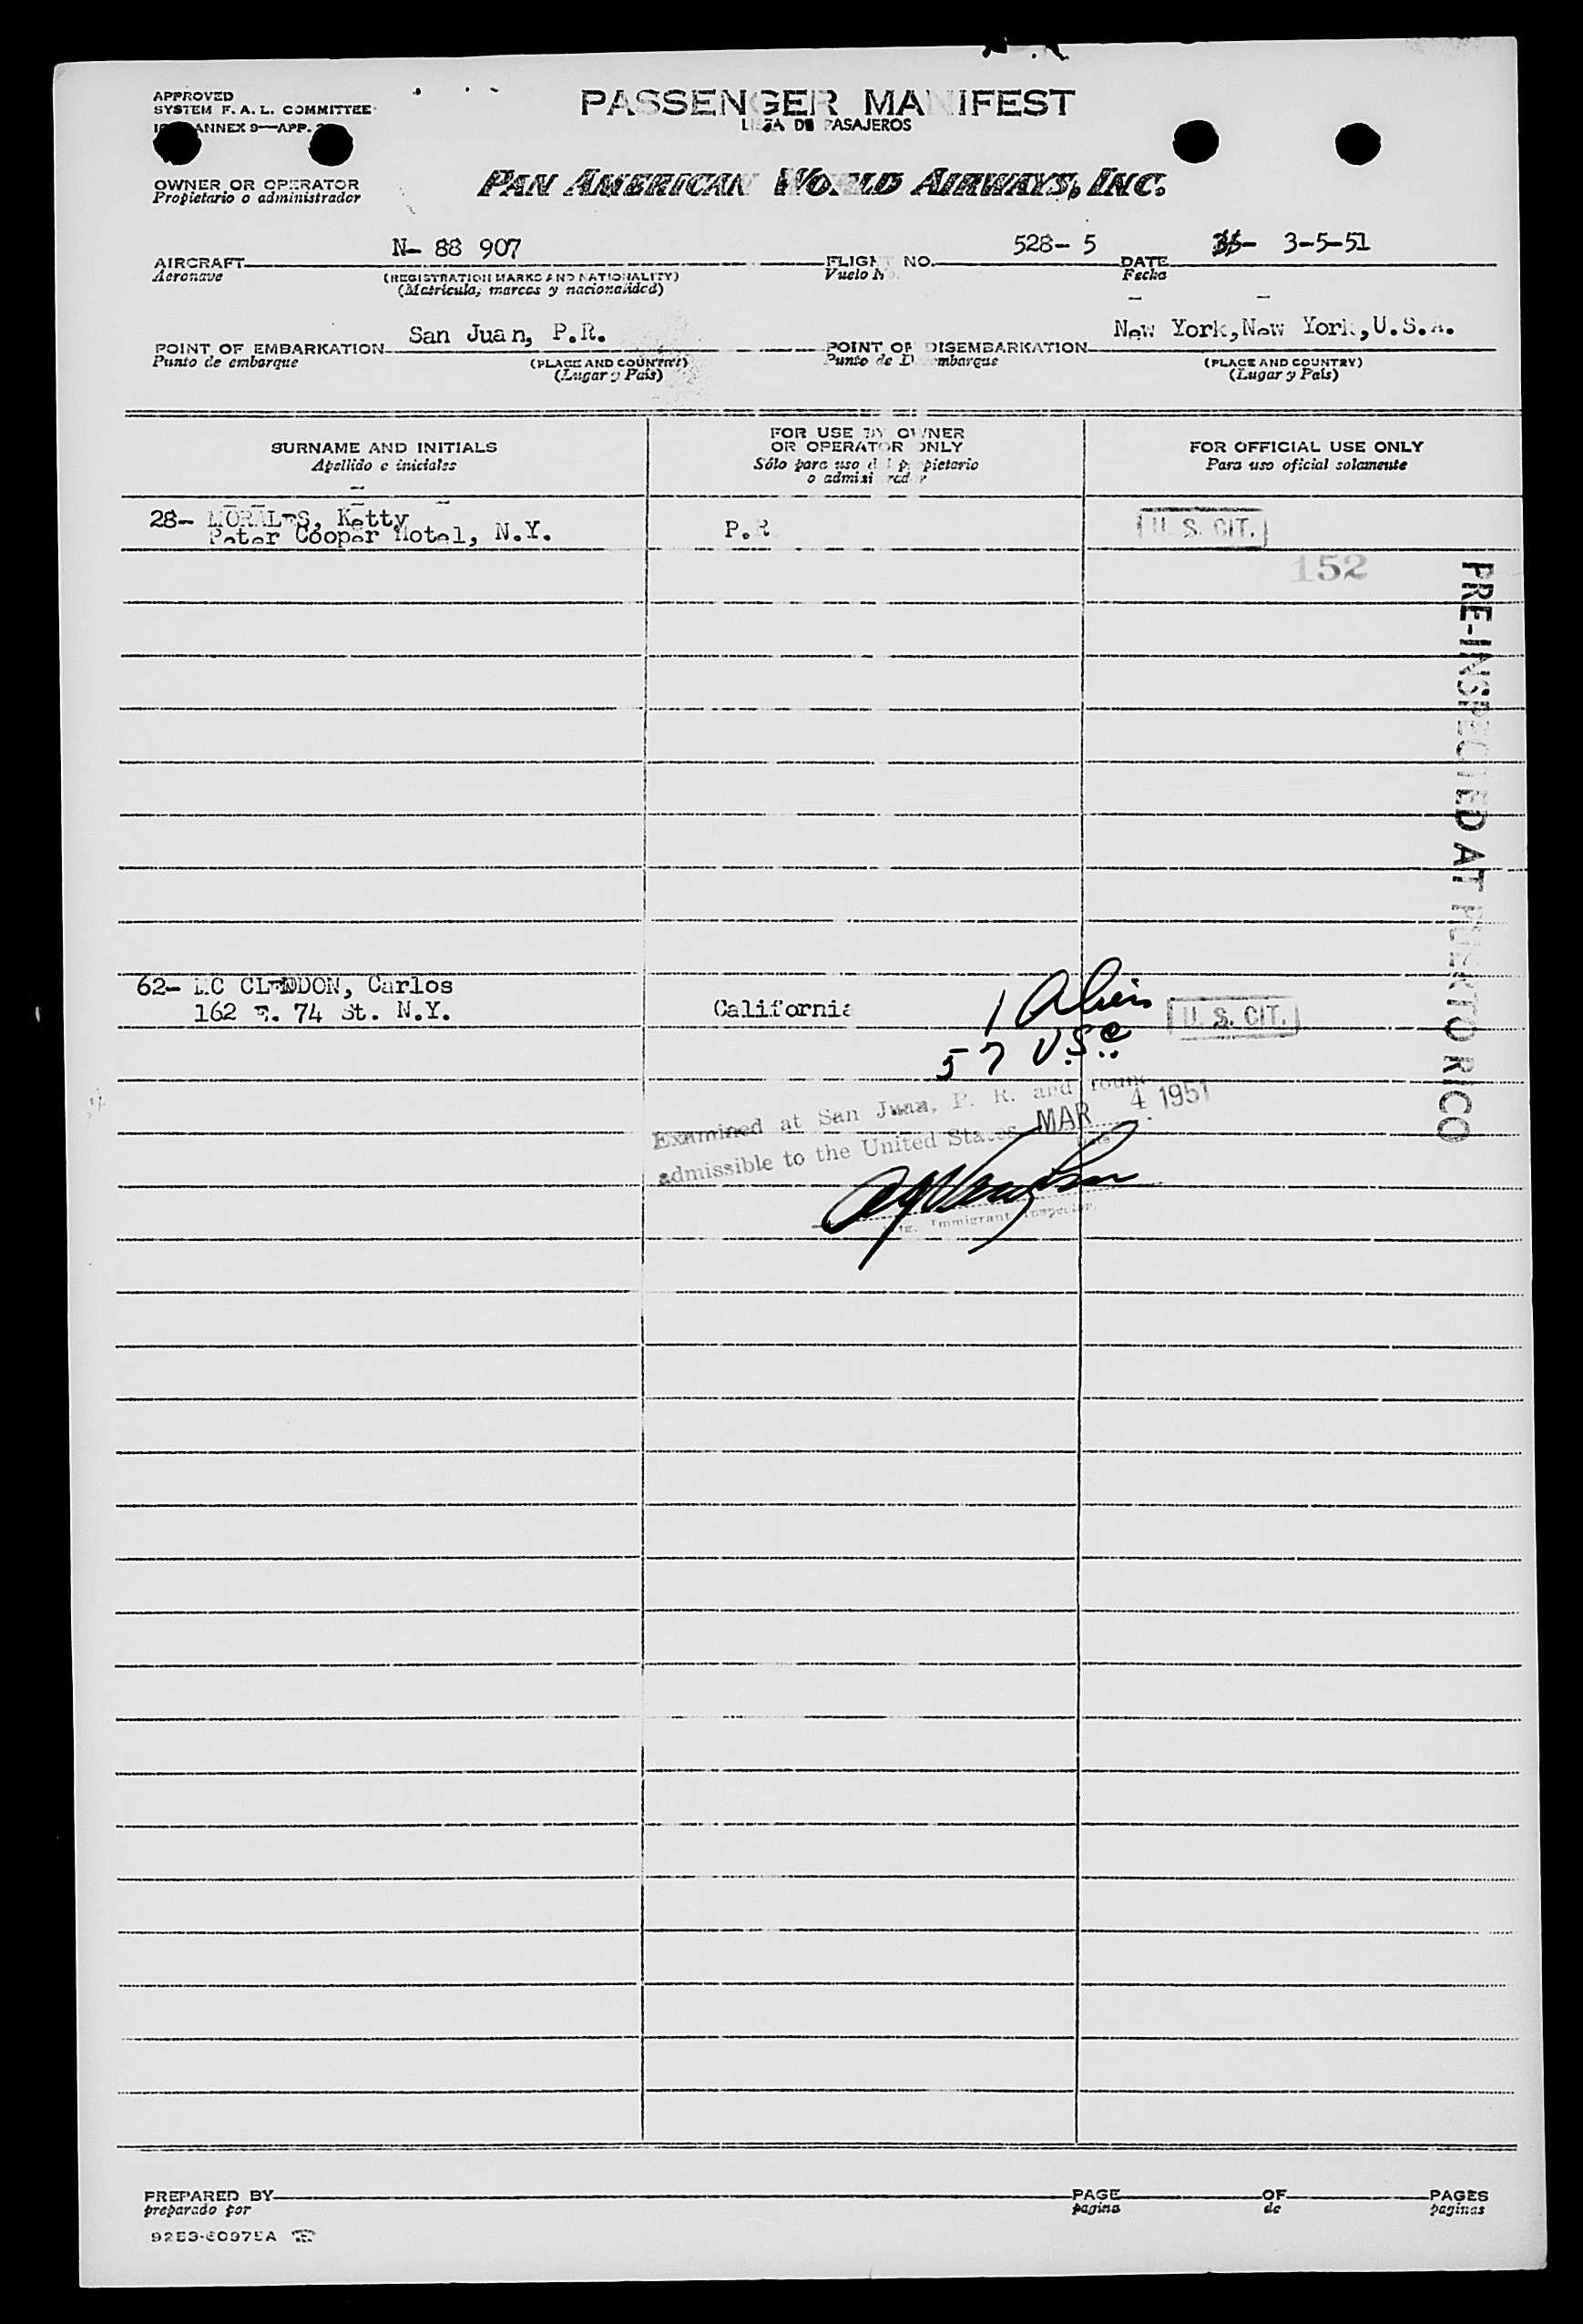 APPROVED
SYSTEM F. A. L. COMMITTEE
ANNEX 9—APP.
PASSENGER MANIFEST
LISTA DE PASAJEROS
OWNER OR OPERATOR
Propietario o administrador
PAN AMERICAN WORLD AIRWAYS, INC.
AIRCRAFT N- 88 907 FLIGHT NO. 528- 5 DATE 3-5-51
Aeronave (REGISTRATION MARKS AND NATIONALITY) Vuelo No. Fecha
(Matrícula, marcas y nacionalidad)
POINT OF EMBARKATION San Juan, P.R. POINT OF DISEMBARKATION New York, New York, U.S.A.
Punto de embarque (PLACE AND COUNTRY) Punto de Desembarque (PLACE AND COUNTRY)
(Lugar y País) (Lugar y País)
SURNAME AND INITIALS
Apellido e iniciales
FOR USE BY OWNER
OR OPERATOR ONLY
Sólo para uso del propietario
o admisirador
FOR OFFICIAL USE ONLY
Para uso oficial solamente
28- MORALES, Ketty
Peter Cooper Hotel, N.Y. P.R. U. S. CIT.
152
PRE-INSPECTED AT PUERTO RICO
62- MC CLENDON, Carlos
162 E. 74 St. N.Y. California 1 Alien U. S. CIT.
57 USC
Examined at San Juan, P. R. and found
admissible to the United States MAR 4 1951
Immigrant Inspector.
PREPARED BY PAGE OF PAGES
preparado por pagina de paginas